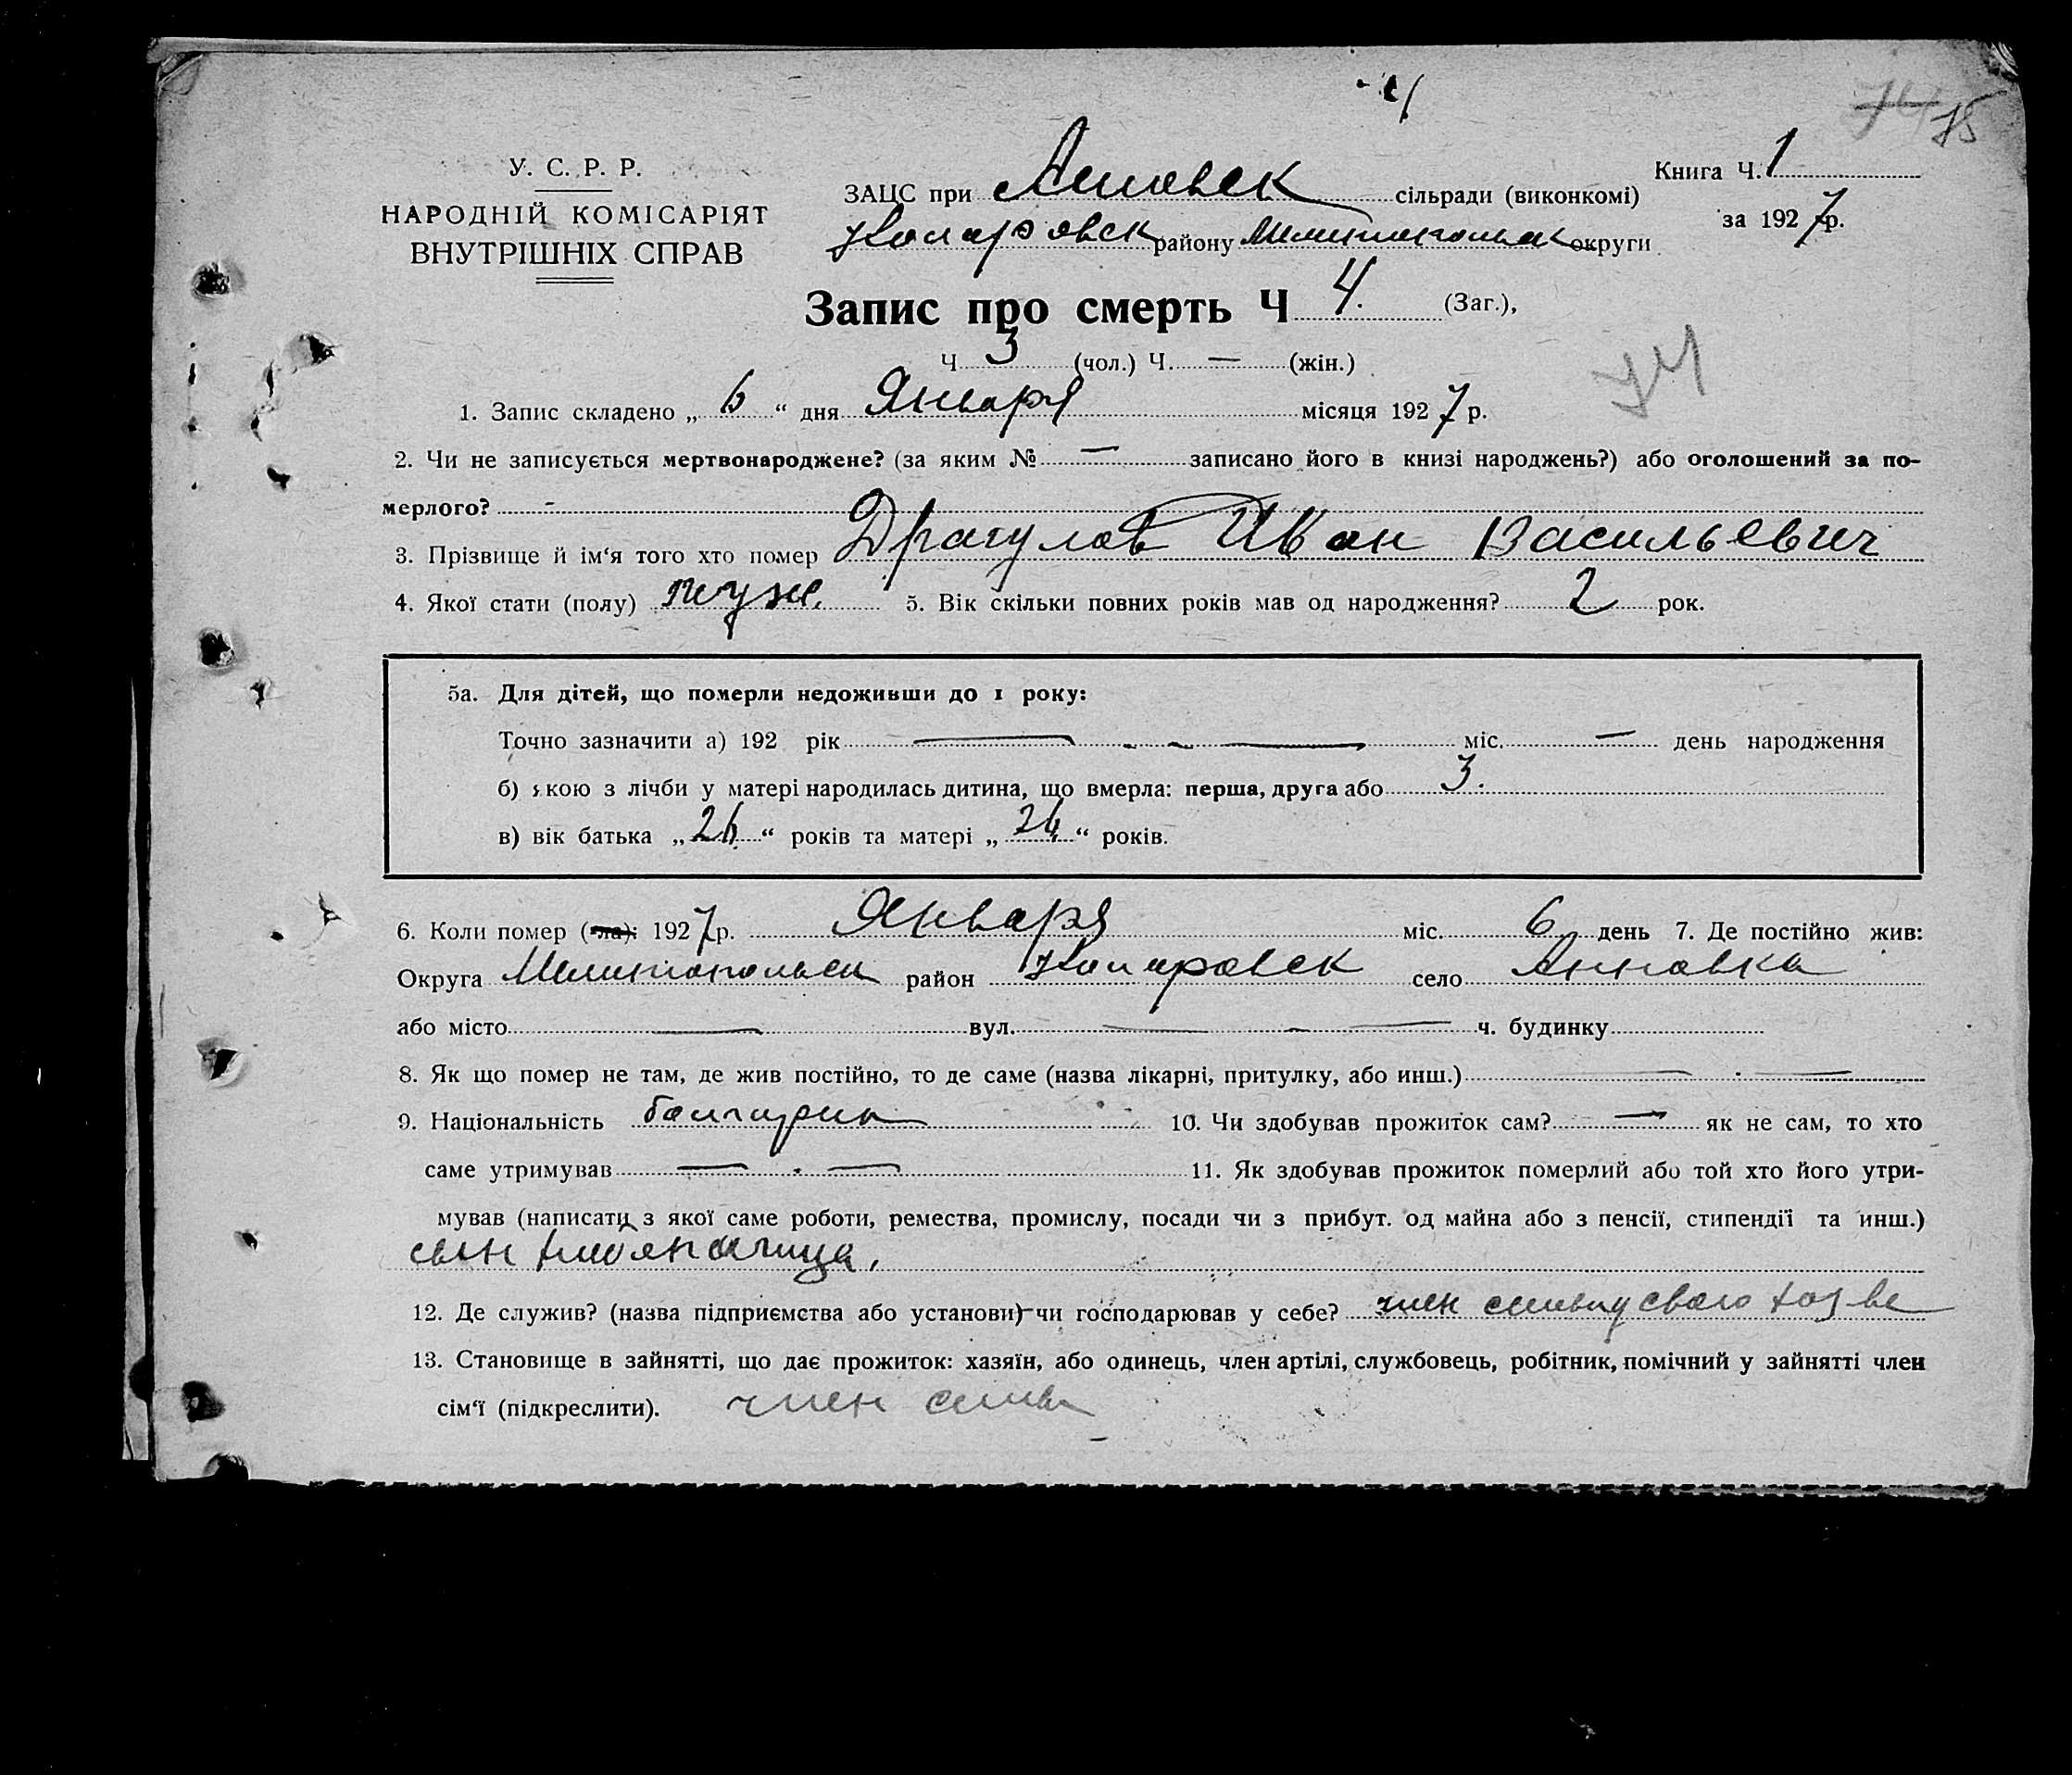 4
74 75
У. С. Р. Р.
НАРОДНІЙ КОМІСАРІЯТ
ВНУТРІШНІХ СПРАВ
ЗАЦС при Анновск сільради (виконкомі)
Коларовск району Мелитопольск округи
Книга Ч. 1
за 1927 р.
Запис про смерть Ч 4. (Заг.),
Ч. 3 (чол.) Ч. — (жін.)
74
1. Запис складено „ 6 “ дня Января місяця 1927 р.
2. Чи не записується мертвонароджене? (за яким № — записано його в книзі народжень?) або оголошений за по-
мерлого? -
3. Прізвище й ім‘я того хто помер Драгулов Иван Васильевич
4. Якої стати (полу) муж. 5. Вік скільки повних років мав од народження? 2 рок.
5а. Для дітей, що померли недоживши до 1 року:
Точно зазначити а) 192 рік — міс. — день народження
б) якою з лічби у матері народилась дитина, що вмерла: перша, друга або 3.
в) вік батька „ 26 “ років та матері „ “ років.
6. Коли помер (-ла): 1927 р. Января міс. 6 день 7. Де постійно жив:
Округа Мелитопольск район Коларовск село Анновка
або місто — вул. — ч. будинку
8. Як що помер не там, де жив постійно, то де саме (назва лікарні, притулку, або инш.) —
9. Національність болгарин 10. Чи здобував прожиток сам? — як не сам, то хто
саме утримував — 11. Як здобував прожиток померлий або той хто його утри-
мував (написати з якої саме роботи, ремества, промислу, посади чи з прибут. од майна або з пенсії, стипендії та инш.)
сын хлебопашца.
12. Де служив? (назва підприємства або установи) чи господарював у себе? член семьи у свого
13. Становище в зайнятті, що дає прожиток: хазяїн, або одинець, член артілі, службовець, робітник, помічний у зайнятті член
сім‘ї (підкреслити). член семьи